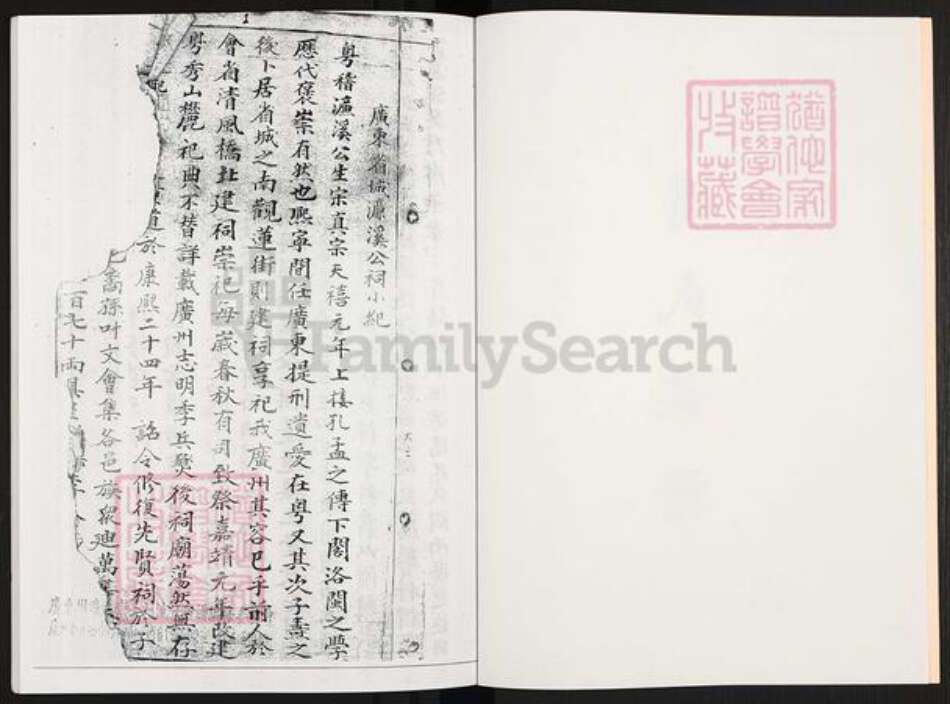 廣東省城濂溪公祠小紀
粤稽濂溪公生宋真宗天禧元年上接孔孟之傳下闢洛閩之學
歷代褒崇有然也熙寧間任廣東提刑遺愛在粤又其次子燾之
後卜居省城之南觀蓮街則建祠享祀我廣州其容已乎前人於
會省清風橋北建祠崇祀每歲春秋有司致祭嘉靖元年改建
粤秀山麓祀典不替詳載廣州志明季兵燹後祠廟蕩然無存
道於康熙二十四年 詔令修復先賢祠於子
裔孫叶文會集各邑族眾廸萬
百七十兩
FamilySearch
譜學會
收藏